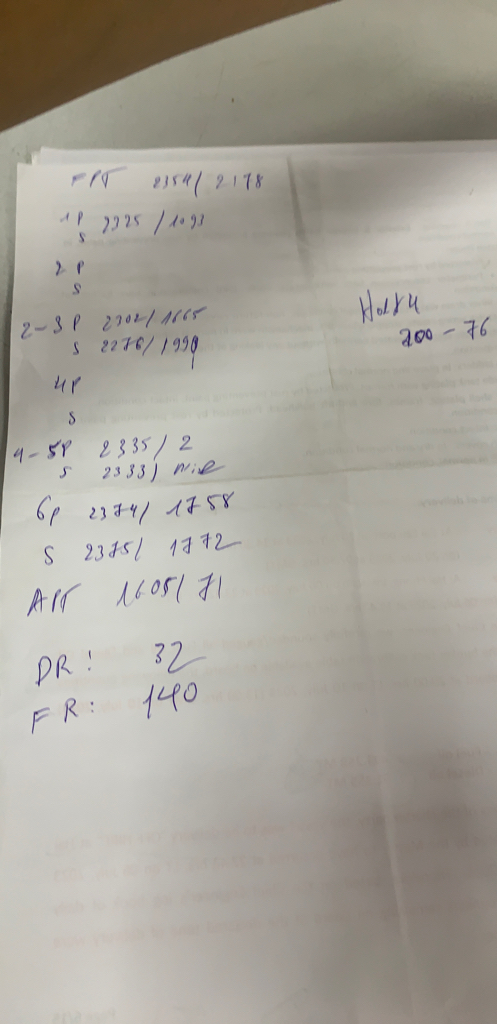 FPT 2354/ 2178
1P
S 2325 /1093
2 P
S
2-3 P 2302/ 1665
S 2276/ 1990
4P
S
4-5P 2335/ 2
S 2333/ nil
6p 2374/ 1758
S 2375/ 1772
APT 1605/ 71
DR! 32
FR: 140
Hold 4
200 - 76